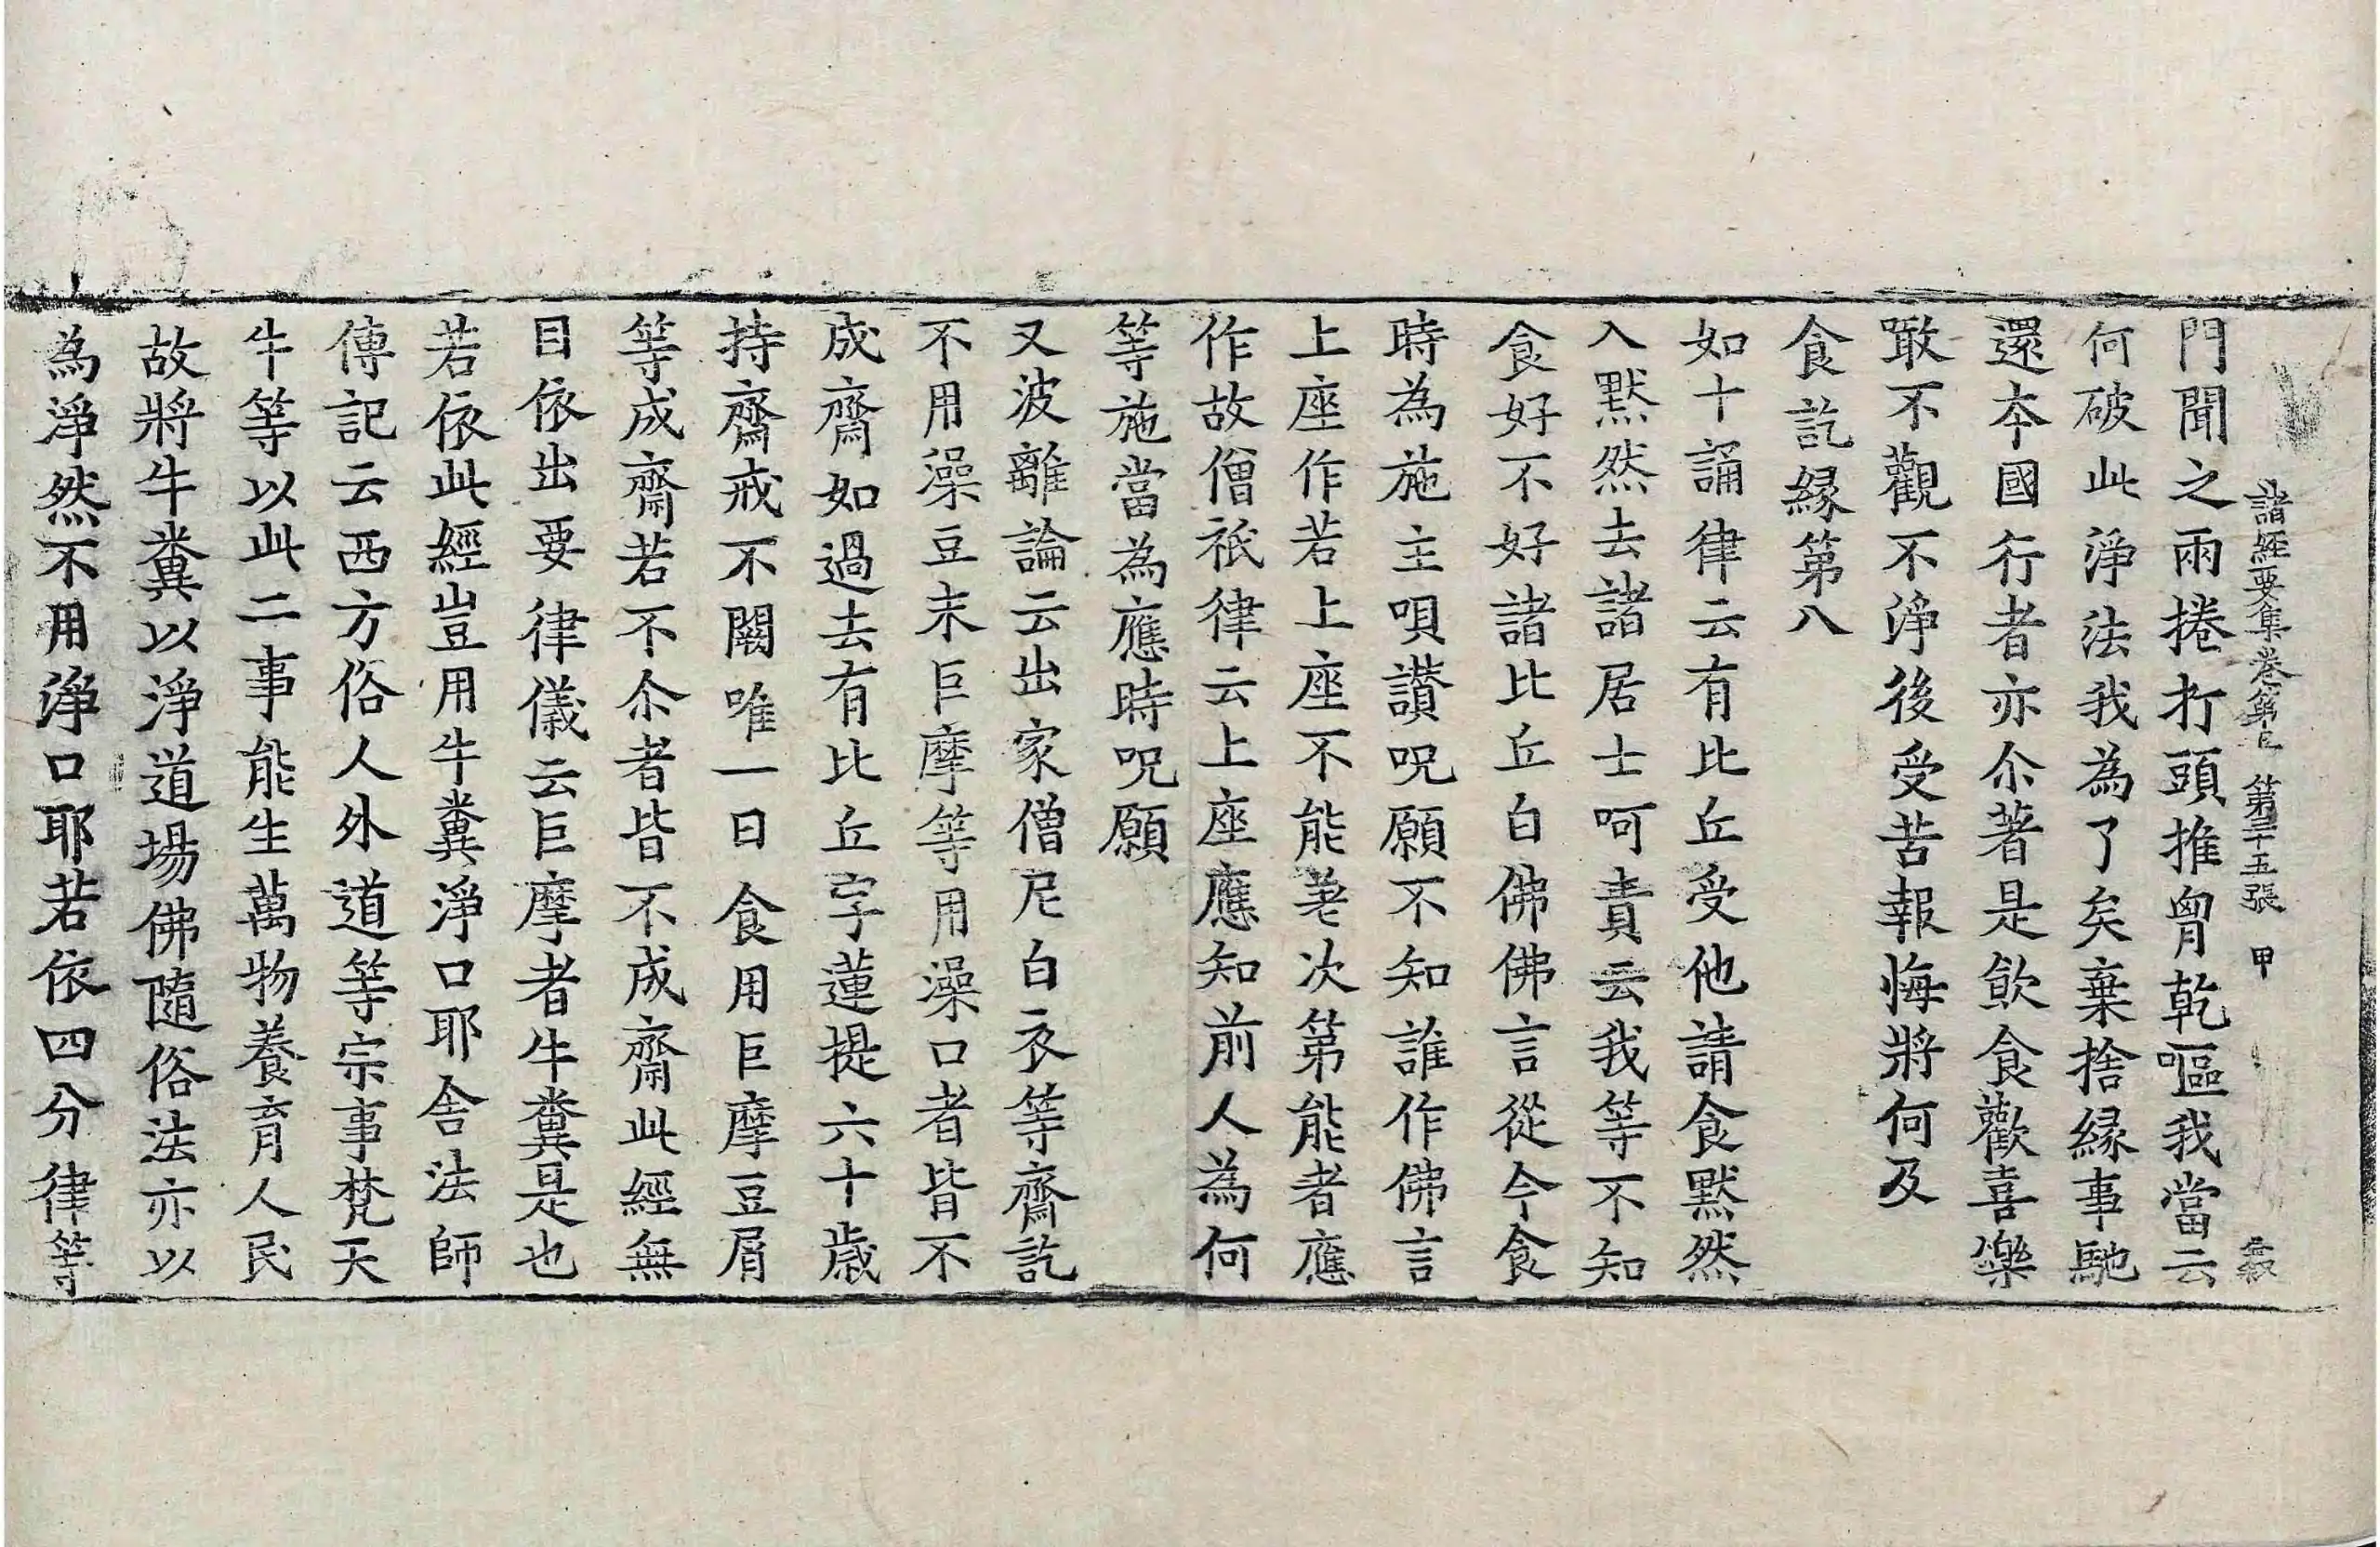 諸經要集卷第七 第三十五張 甲
門聞之兩捲打頭推胷乾嘔我當云
何破此淨法我為了矣棄捨緣事馳
還本國行者亦尒著是飲食歡喜樂
噉不觀不淨後受苦報悔將何及
食訖緣第八
如十誦律云有比丘受他請食默然
入默然去諸居士呵責云我等不知
食好不好諸比丘白佛佛言從今食
時為施主唄讚呪願不知誰作佛言
上座作若上座不能差次第能者應
作故僧祇律云上座應知前人為何
等施當為應時呪願
又波離論云出家僧尼白衣等齋訖
不用澡豆末巨摩等用澡口者皆不
成齋如過去有比丘字蓮提六十歲
持齋戒不闕唯一日食用巨摩豆屑
等成齋若不尒者皆不成齋此經無
目依出要律儀云巨摩者牛糞是也
若依此經豈用牛糞淨口耶舍法師
傳記云西方俗人外道等宗事梵天
牛等以此二事能生萬物養育人民
故將牛糞以淨道場佛隨俗法亦以
為淨然不用淨口耶若依四分律等